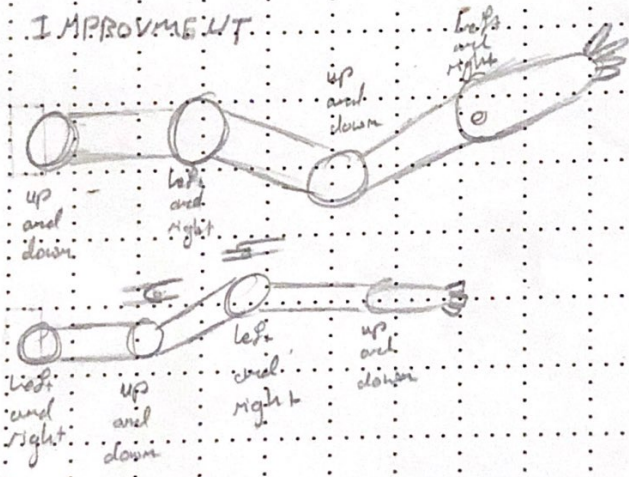 IMPROVMENT
left
and
right
up
and
down
up
and
down
left
and
right
left
and
right
up
and
down
left
and
right
up
and
down